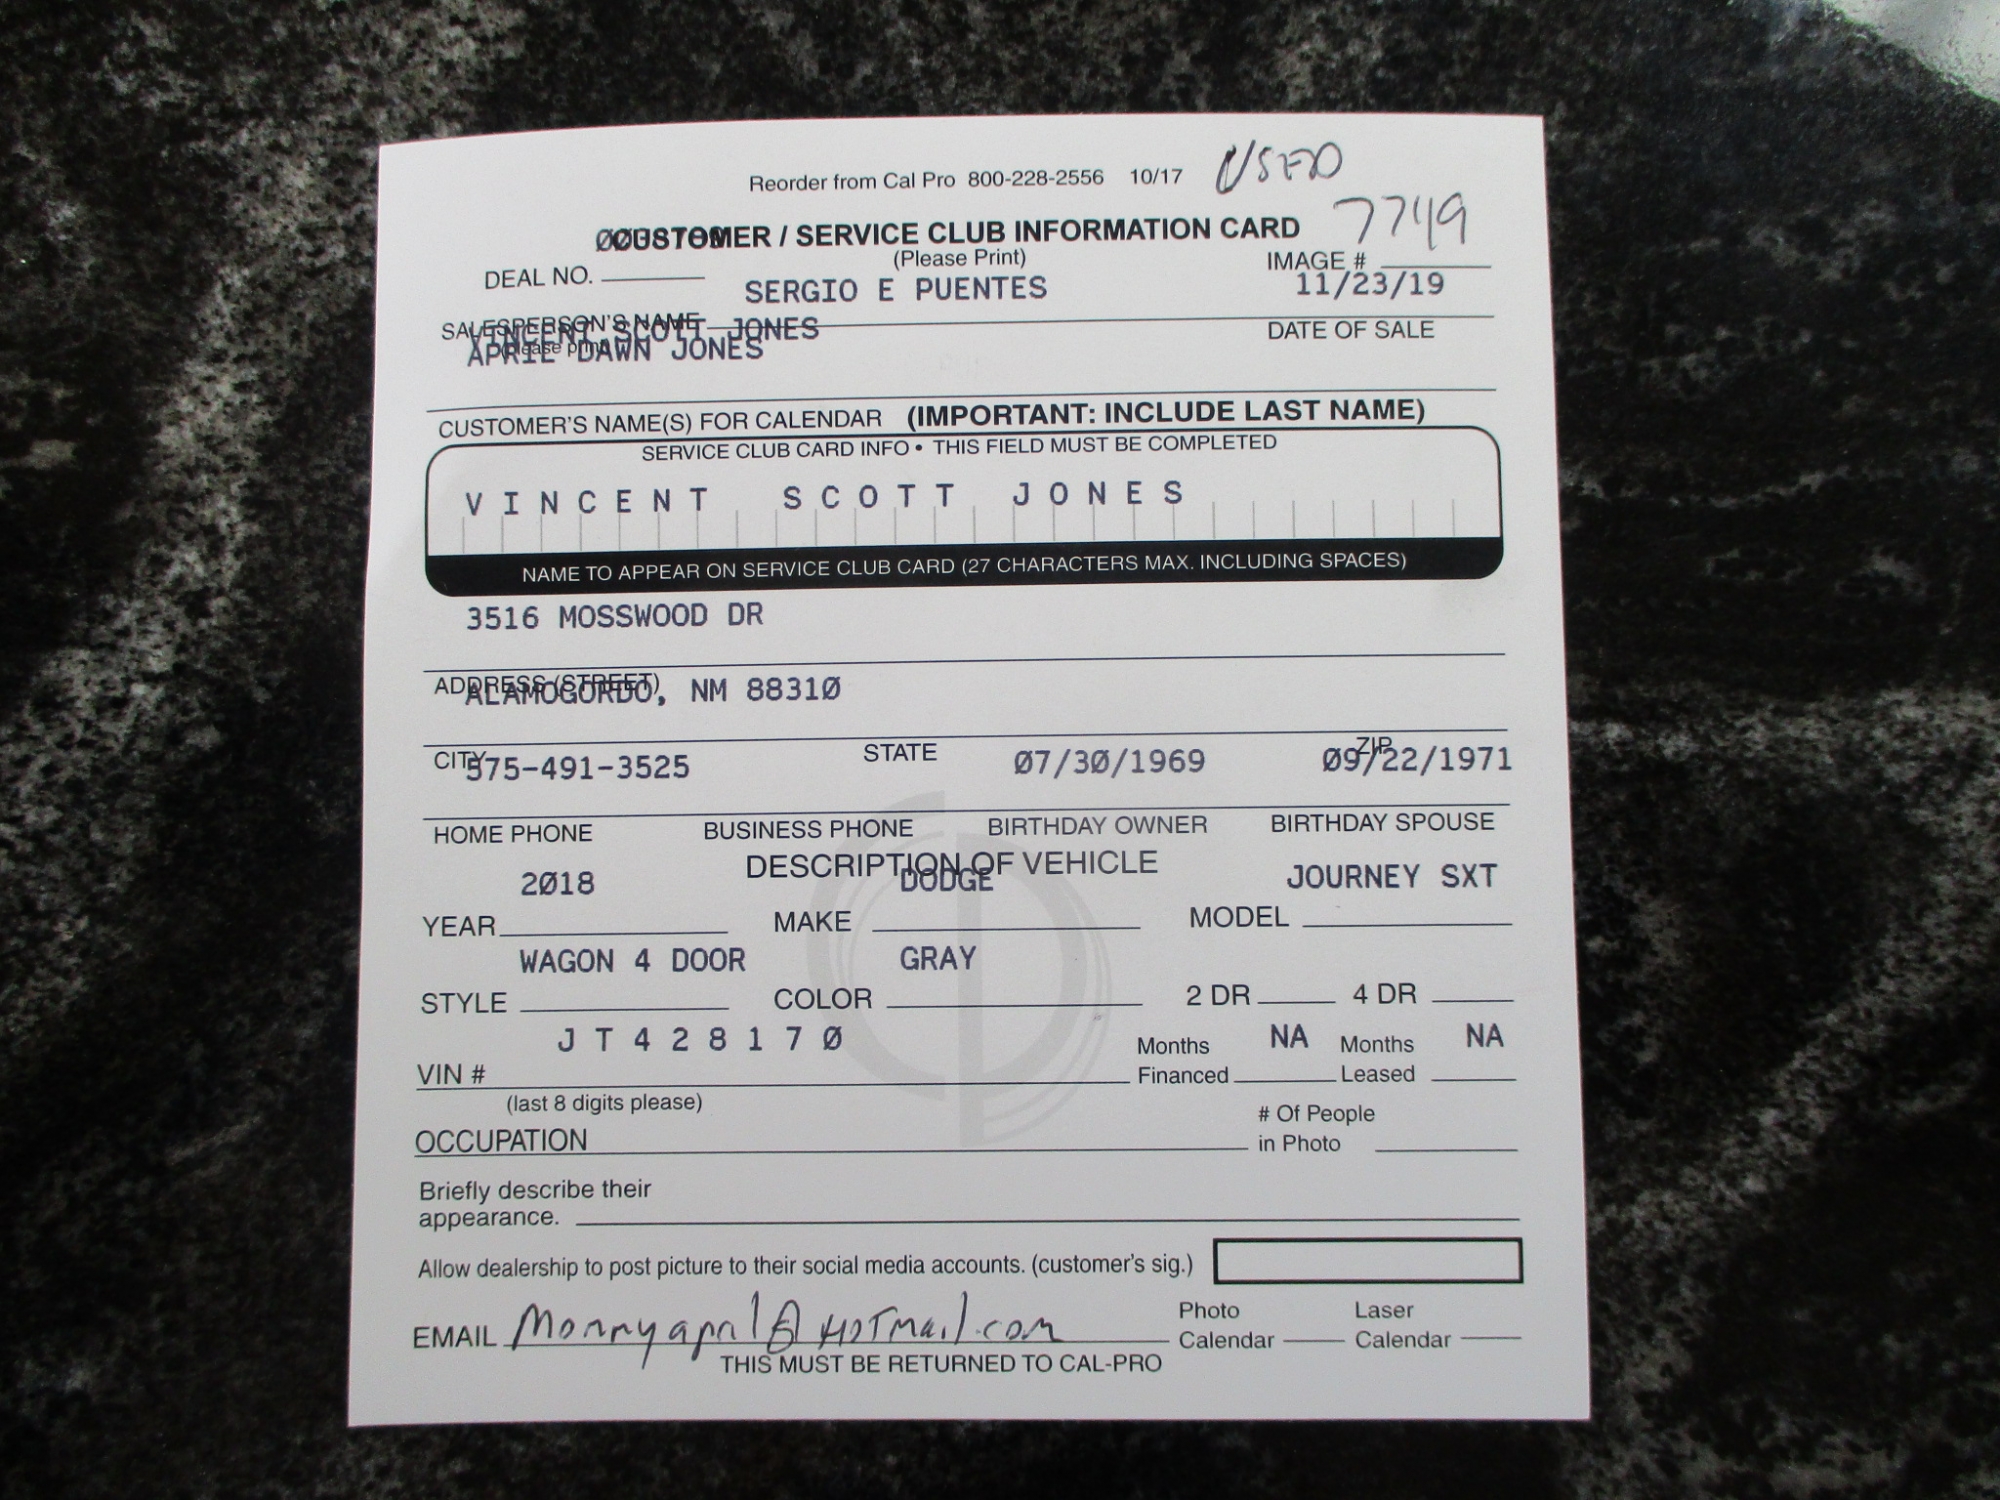 Reorder from Cal Pro 800-228-2556 10/17 USED
CUSTOMER / SERVICE CLUB INFORMATION CARD 7749
(Please Print)
DEAL NO. IMAGE #
SERGIO E PUENTES 11/23/19
SALESPERSON'S NAME DATE OF SALE
(please print)
VINCENT SCOTT JONES
APRIL DAWN JONES
CUSTOMER'S NAME(S) FOR CALENDAR (IMPORTANT: INCLUDE LAST NAME)
SERVICE CLUB CARD INFO • THIS FIELD MUST BE COMPLETED
VINCENT SCOTT JONES
NAME TO APPEAR ON SERVICE CLUB CARD (27 CHARACTERS MAX. INCLUDING SPACES)
3516 MOSSWOOD DR
ADDRESS (STREET)
ALAMOGORDO, NM 88310
CITY STATE ZIP
575-491-3525 07/30/1969 09/22/1971
HOME PHONE BUSINESS PHONE BIRTHDAY OWNER BIRTHDAY SPOUSE
DESCRIPTION OF VEHICLE
2018 DODGE JOURNEY SXT
YEAR MAKE MODEL
WAGON 4 DOOR GRAY
STYLE COLOR 2 DR 4 DR
JT428170 NA NA
VIN # Months Financed Months Leased
(last 8 digits please)
OCCUPATION # Of People in Photo
Briefly describe their
appearance.
Allow dealership to post picture to their social media accounts. (customer's sig.)
EMAIL @ HOTmail.com Photo Calendar Laser Calendar
THIS MUST BE RETURNED TO CAL-PRO